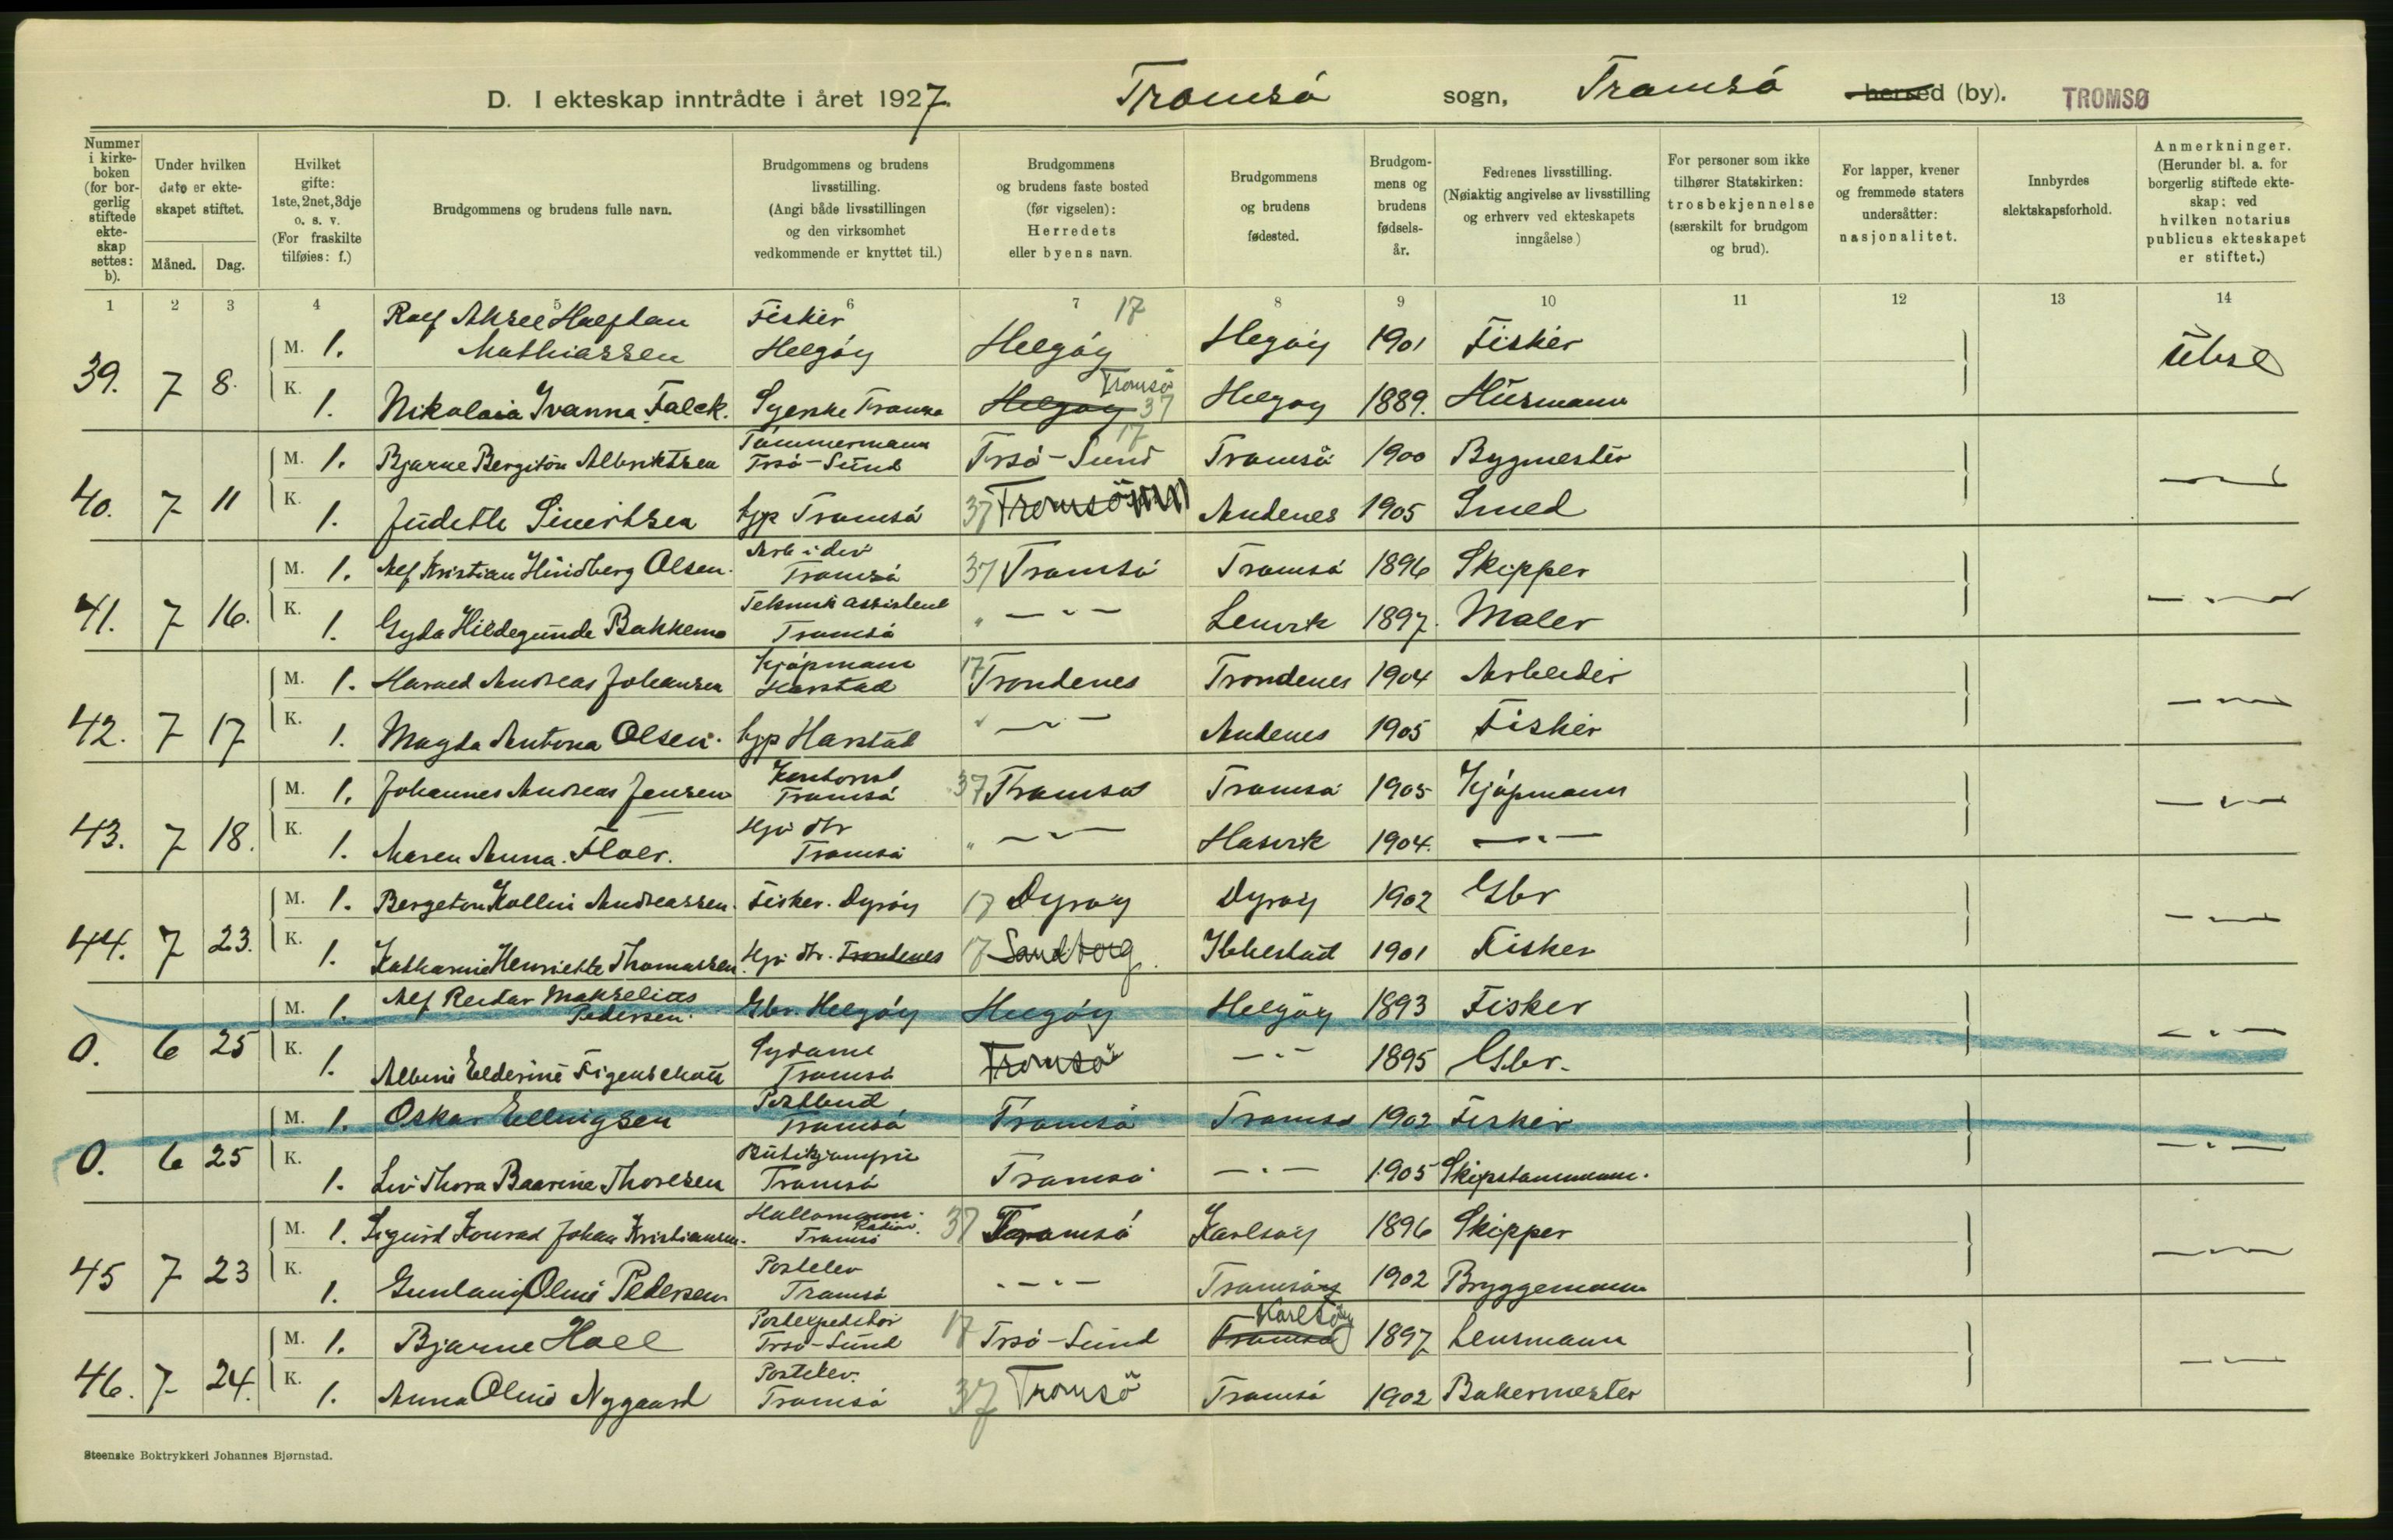 D. I ekteskap inntrådte i året 1927. Tromsø sogn, Tromsø herred (by). TROMSØ
Nummer i kirke-boken (for bor-gerlig stiftede ekte-skap settes: b).
Under hvilken dato er ekte-skapet stiftet.
Måned. Dag.
Hvilket gifte: 1ste, 2net, 3dje o. s. v. (For fraskilte tilføies: f.)
Brudgommens og brudens fulle navn.
Brudgommens og brudens livsstilling. (Angi både livsstillingen og den virksomhet vedkommende er knyttet til.)
Brudgommens og brudens faste bosted (før vigselen): Herredets eller byens navn.
Brudgommens og brudens fødested.
Brudgom-mens og brudens fødsels-år.
Fedrenes livsstilling. (Nøiaktig angivelse av livsstilling og erhverv ved ekteskapets inngåelse)
For personer som ikke tilhører Statskirken: trosbekjennelse (særskilt for brudgom og brud).
For lapper, kvener og fremmede staters undersåtter: nasjonalitet.
Innbyrdes slektskapsforhold.
Anmerkninger. (Herunder bl. a. for borgerlig stiftede ekte-skap: ved hvilken notarius publicus ekteskapet er stiftet.)
1 2 3 4 5 6 7 8 9 10 11 12 13 14
17
39. 7 8. M. 1. Ralf Aksel Halfdan Mathiassen Fisker Helgøy Helgøy Hegøy 1901 Fisker
K. 1. Nikolaia Ivanna Falck. Helgøy Tromsø 37 Helgøy 1889. Husmann
17
40. 7 11 M. 1. Bjarne Bergiton Albriktsen Tømmermann Trsø-Sund Trsø-Sund Tromsø 1900 Bygmester —"—
K. 1. Judithe Sivertsen hjp Tromsø 37 Tromsø Andenes 1905 Smed
41. 7 16. M. 1. Alf Kristian Hindberg Olsen. Arbeider Tromsø 37 Tromsø Tromsø 1896 Skipper —"—
K. 1. Gyda Hildegunde Bakkemo Teknisk assistent Tromsø " —"— Lenvik 1897. Maler
42. 7 17 M. 1. Harald Andreas Johansen Kjøpmann Harstad 17 Trondenes Trondenes 1904 Arbeider —"—
K. 1. Magda Antona Olsen. hjp Harstad " —"— Andenes 1905 Fisker
43. 7 18. M. 1. Johannes Andreas Jensen Kontorist Tromsø 37 Tromsø Tromsø 1905 Kjøpmann —"—
K. 1. Maren Anna Floer. Hj. dtr Tromsø " —"— Hasvik 1904. —"—
44. 7 23. M. 1. Bergeton Kollin Andreassen. Fisker. Dyrøy 17 Dyrøy Dyrøy 1902 Gbr —"—
K. 1. Katharine Henriette Thomassen. Hj. dtr. Trondenes 17 Sandtorg. Ibbestad 1901 Fisker
0. 6 25 M. 1. Alf Reidar Makselius Pedersen. Gbr. Helgøy Helgøy Helgøy 1893 Fisker —"—
K. 1. Albine Elderine Figenschau Sydame Tromsø Tromsø —"— 1895 Gbr.
0. 6 25 M. 1. Oskar Ellingsen Postbud Tromsø Tromsø Tromsø 1902 Fisker —"—
K. 1. Liv Thora Baarine Thoresen Butikjomfru Tromsø Tromsø —"— 1905 Skipstømmermann.
45 7 23 M. 1. Sigurd Konrad Johan Kristiansen. Hallomann Radio. Tromsø 37 Tromsø Karlsøy 1896 Skipper —"—
K. 1. Gunlaug Oline Pedersen Postelev Tromsø —"— Tromsøy 1902 Bryggemann
46. 7 24. M. 1. Bjarne Hall Postexpeditør Trsø-Sund 17 Trsø-Sund Tromsø Karlsøy 1897 Lensmann —"—
K. 1. Anna Oline Nygaard Postelev. Tromsø 37 Tromsø Tromsø 1902 Bakermester
Steenske Boktrykkeri Johannes Bjørnstad.